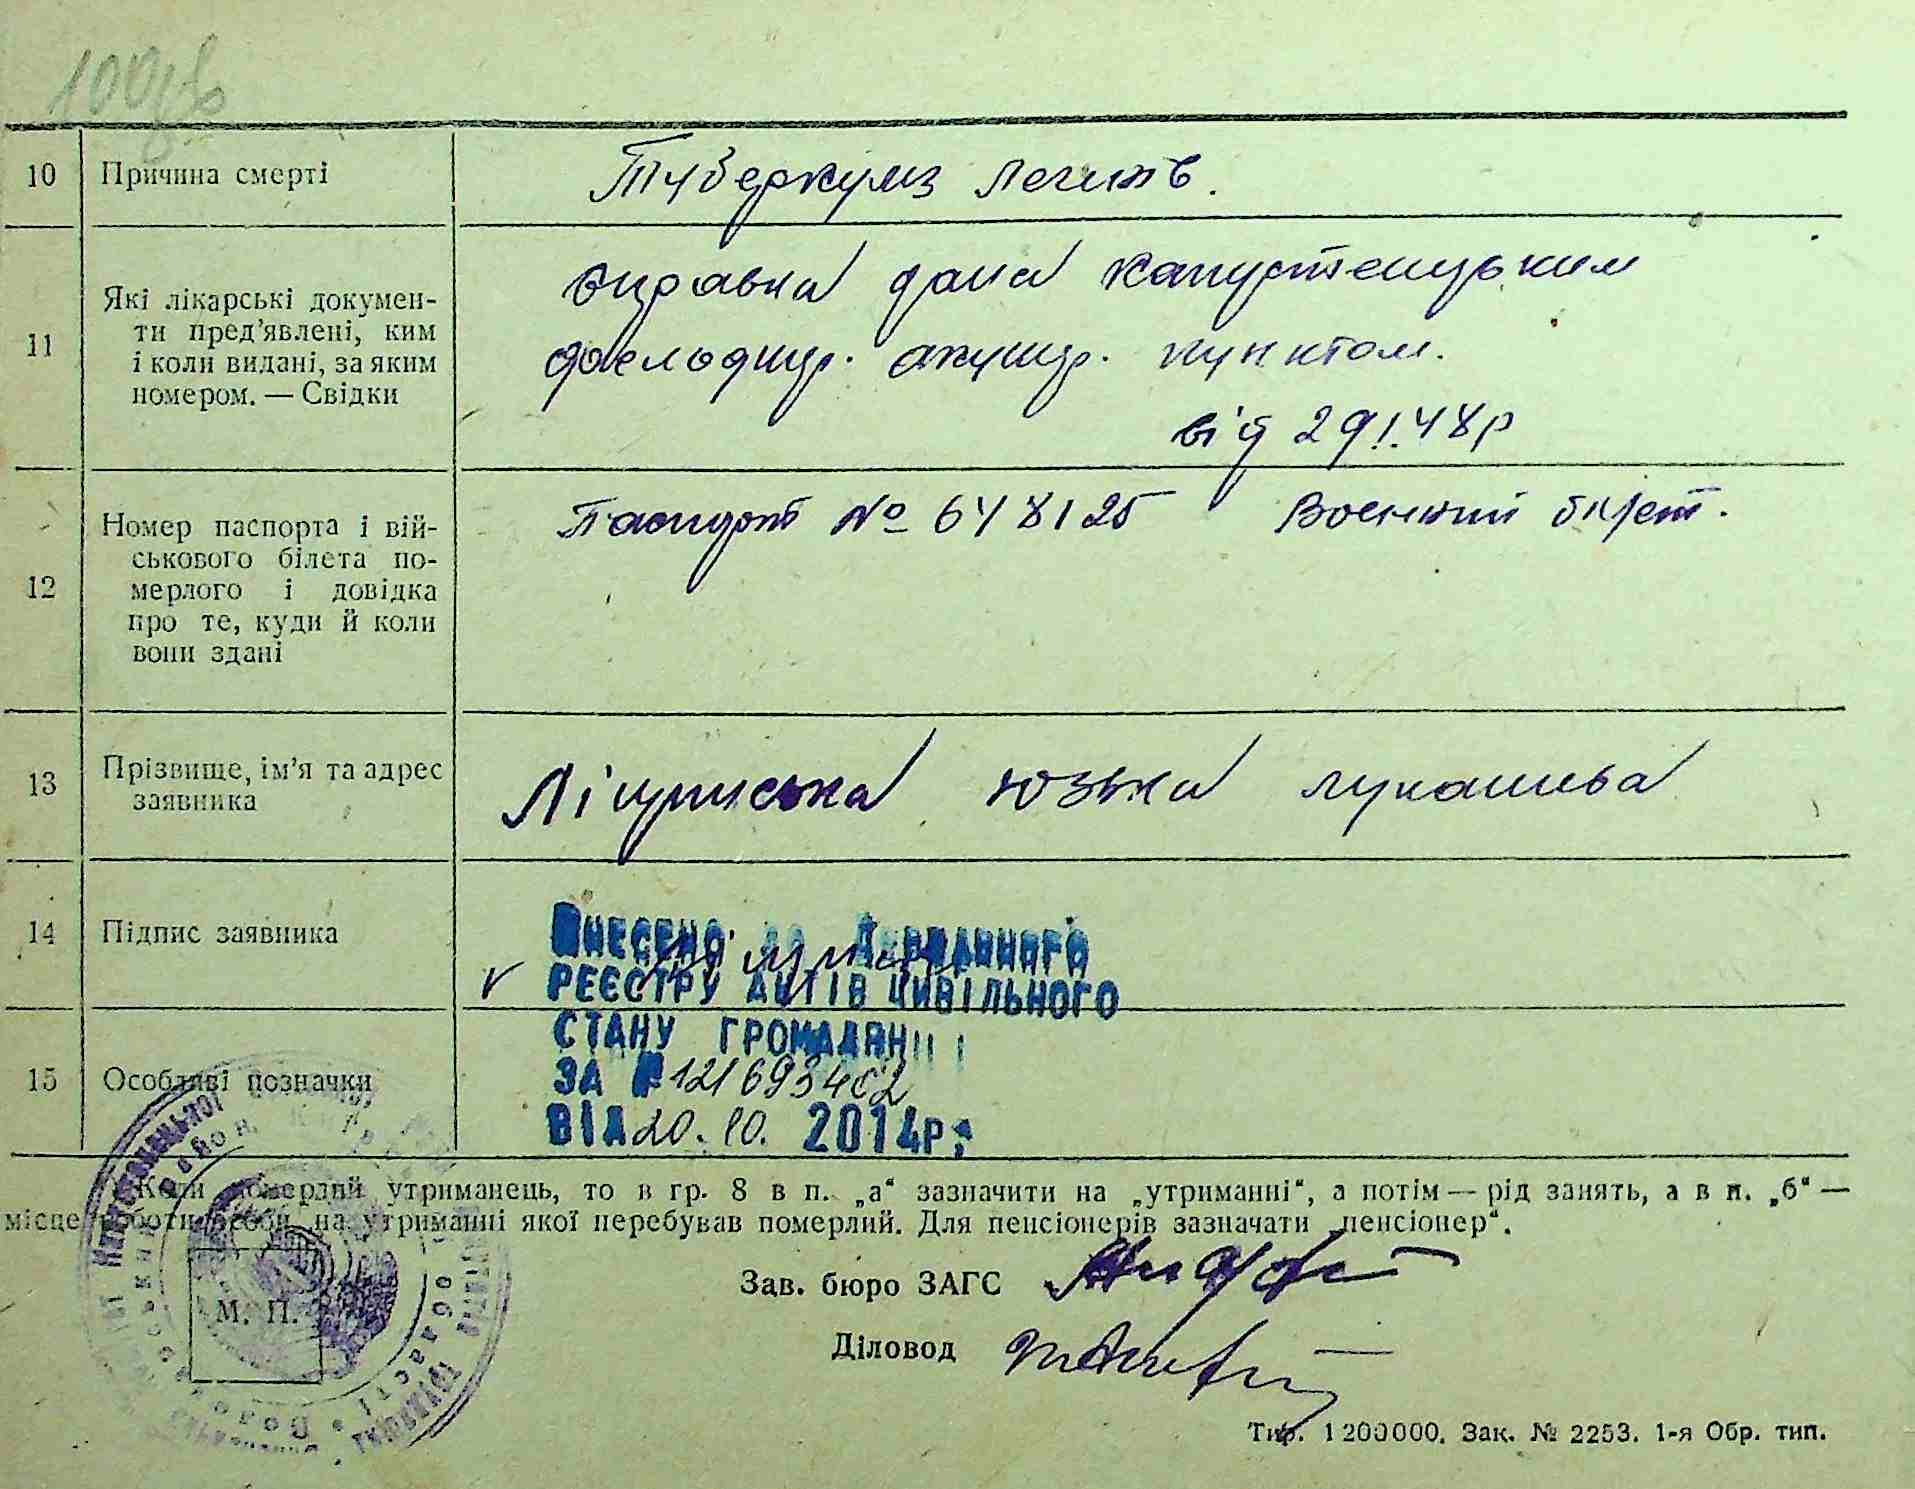 100
10 Причина смерті Туберкульз легинів.
11 Які лікарські докумен-
ти пред'явлені, ким
і коли видані, за яким
номером. — Свідки
справка дана
акушер. пунктом.
від 29 I.48р
12 Номер паспорта і вій-
ськового білета по-
мерлого і довідка
про те, куди й коли
вони здані
Паспорт № 648125 Воєнний білет.
13 Прізвище, ім'я та адрес
заявника
юзька лукашева
14 Підпис заявника
ВНЕСЕНО до Державного
РЕЄСТРУ АКТІВ ЦИВІЛЬНОГО
СТАНУ ГРОМАДЯН
15 Особливі позначки
ЗА № 121693402
ВІД 20.10. 2014р.
Коли померлий утриманець, то в гр. 8 в п. „а“ зазначити на „утриманні“, а потім — рід занять, а в п. „б“ —
місце роботи особи, на утриманні якої перебував померлий. Для пенсіонерів зазначати „пенсіонер“.
Зав. бюро ЗАГС
М. П.
Діловод
Тир. 1200000. Зак. № 2253. 1-я Обр. тип.